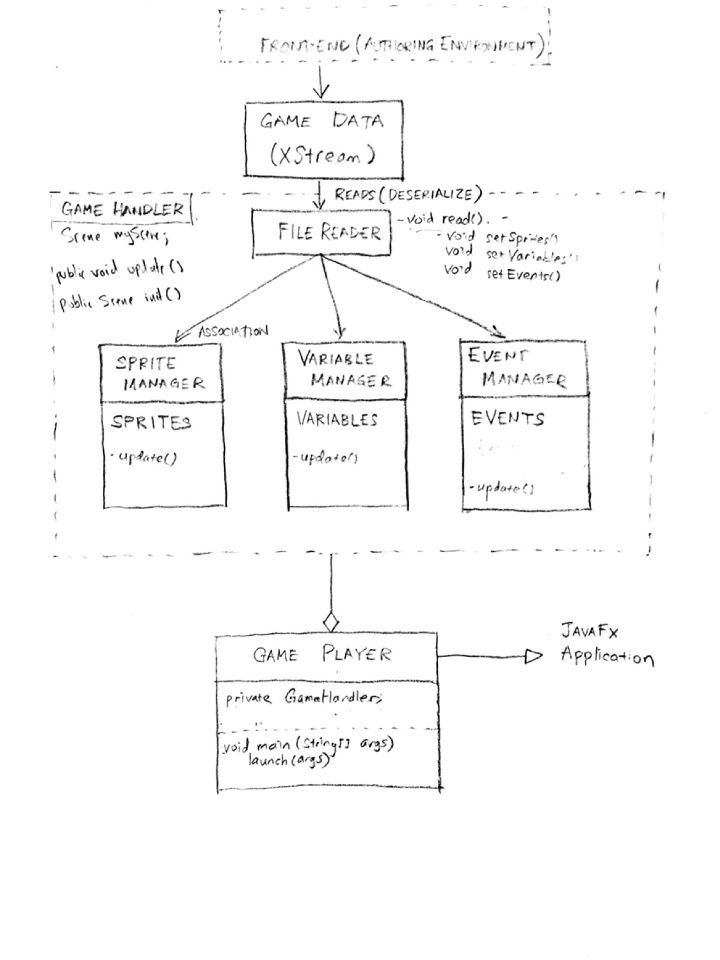 FRONT-END (AUTHORING ENVIRONMENT)
GAME DATA
(XStream)
READS (DESERIALIZE)
GAME HANDLER
Scene myScene;
public void update()
public Scene init()
FILE READER
- void read().
- void setSprites()
void setVariables()
void setEvents()
ASSOCIATION
SPRITE
MANAGER
SPRITES
- update()
VARIABLE
MANAGER
VARIABLES
- update()
EVENT
MANAGER
EVENTS
- update()
GAME PLAYER
private GameHandler;
void main (String[] args)
launch(args)
JAVAFX
Application